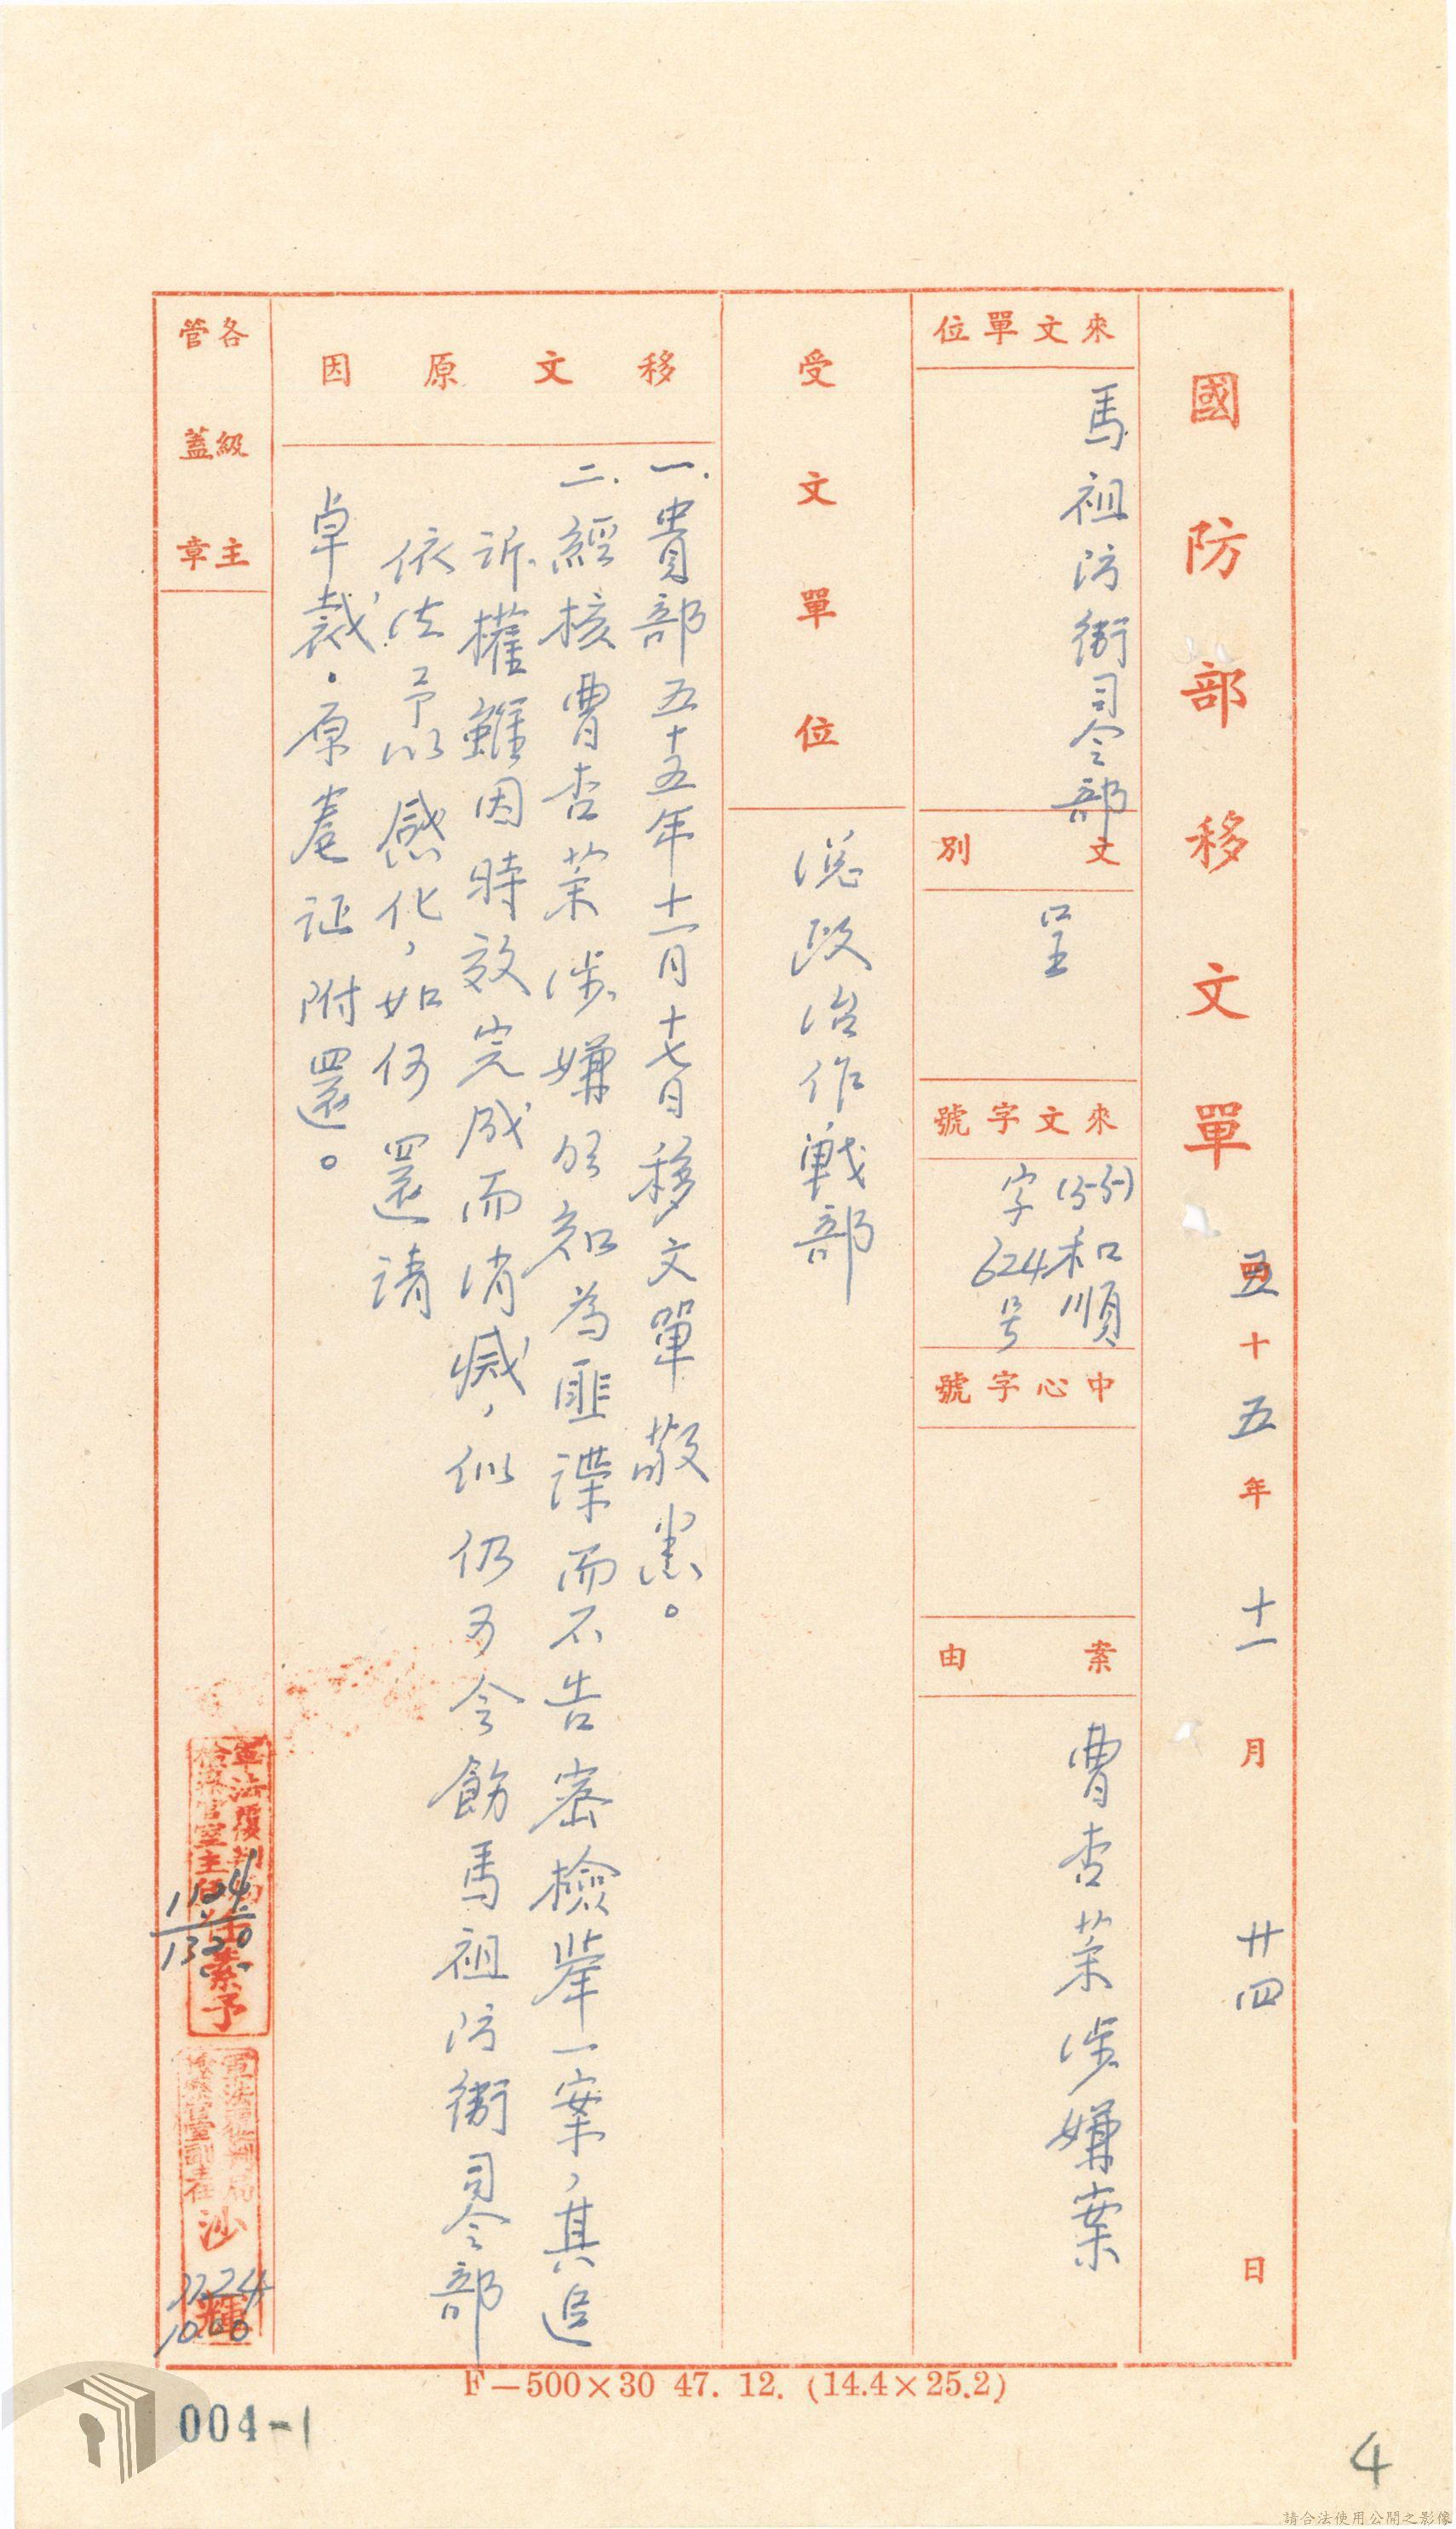 國防部移文單 五十五年十一月廿四日
來文單位
馬祖防衛司令部
文別
呈
來文字號
(55)和順
字624号
中心字號
案由
曹杏菜涉嫌案
受文單位
總政治作戰部
移文原因
一.貴部五十五年十一月十七日移文單敬悉。
二.經核曹杏菜涉嫌明知為匪諜而不告密檢舉一案,其追
訴權雖因時效完成而消滅,似仍可令飭馬祖防衛司令部
依法予以感化,如何還請
卓裁.原卷証附還。
各級主
管蓋章
軍法覆判局
檢察官室主任
素予
1124
1320
軍法覆判局
沙
輝
1124
1000
F-500×30 47. 12. (14.4×25.2)
004-1
4
請合法使用公開之影像